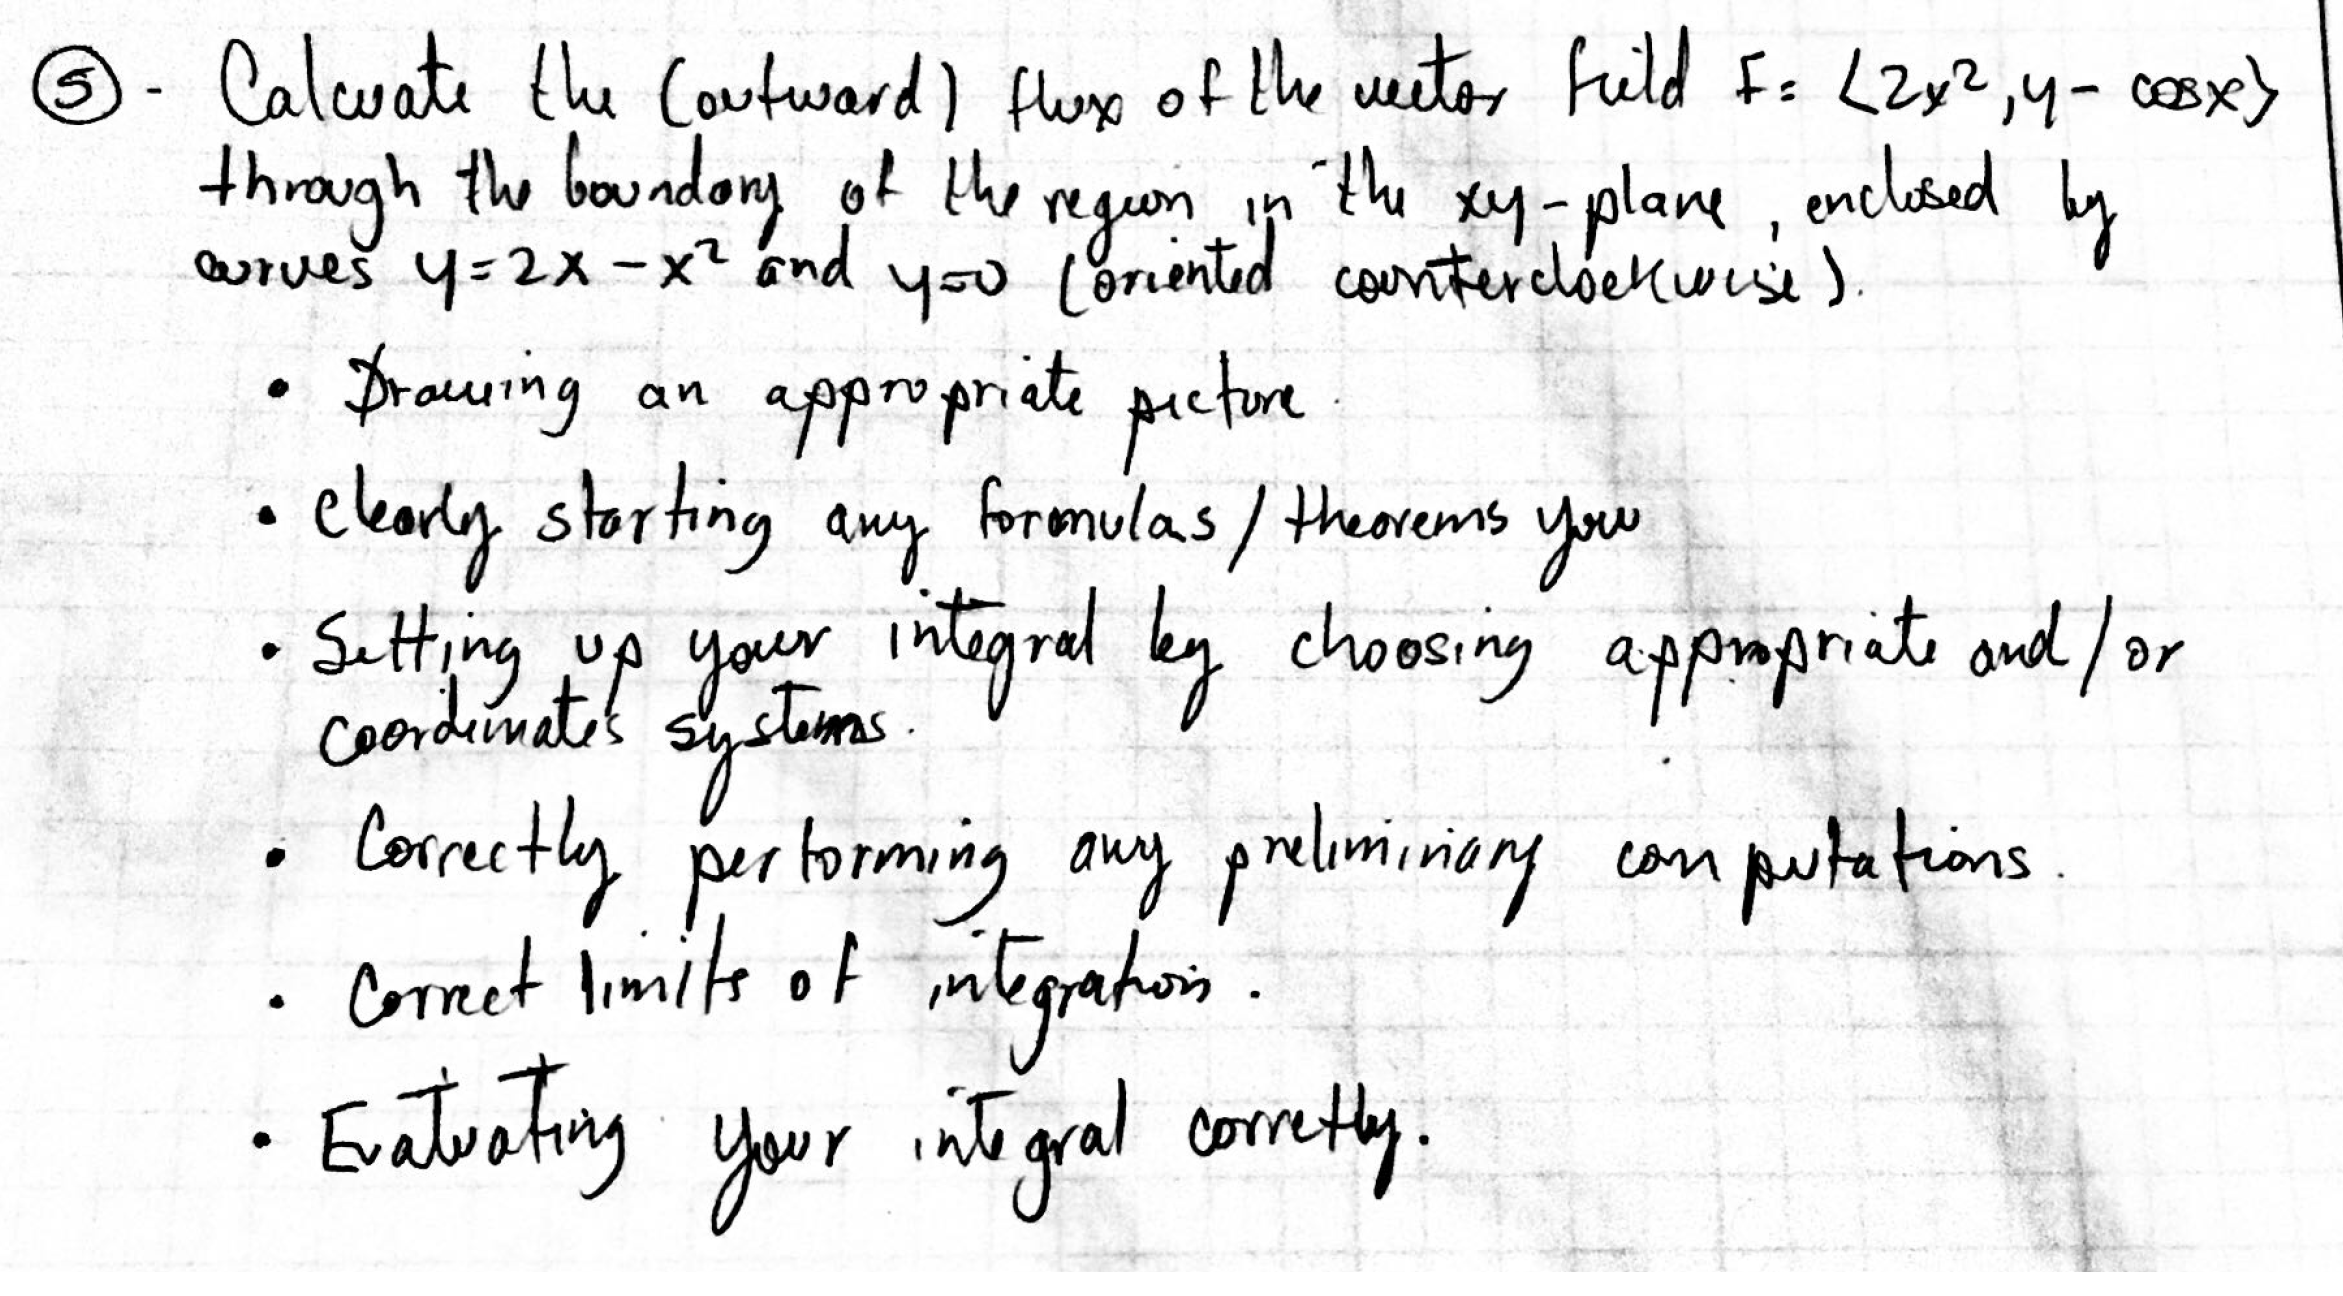 ⑤- Calcuate the (outward) flux of the vector field F= <2x², y - cosx>
through the boundary of the region in the xy-plane, enclosed by
curves y=2x-x² and y=0 (oriented counterclockwise).
• Drawing an appropriate picture.
• Clearly starting any formulas/theorems you
• Setting up your integral by choosing appropriate and/or
coordinates systems.
• Correctly performing any preliminiary computations.
• Correct limits of integration.
• Evatuating your integral corretly.